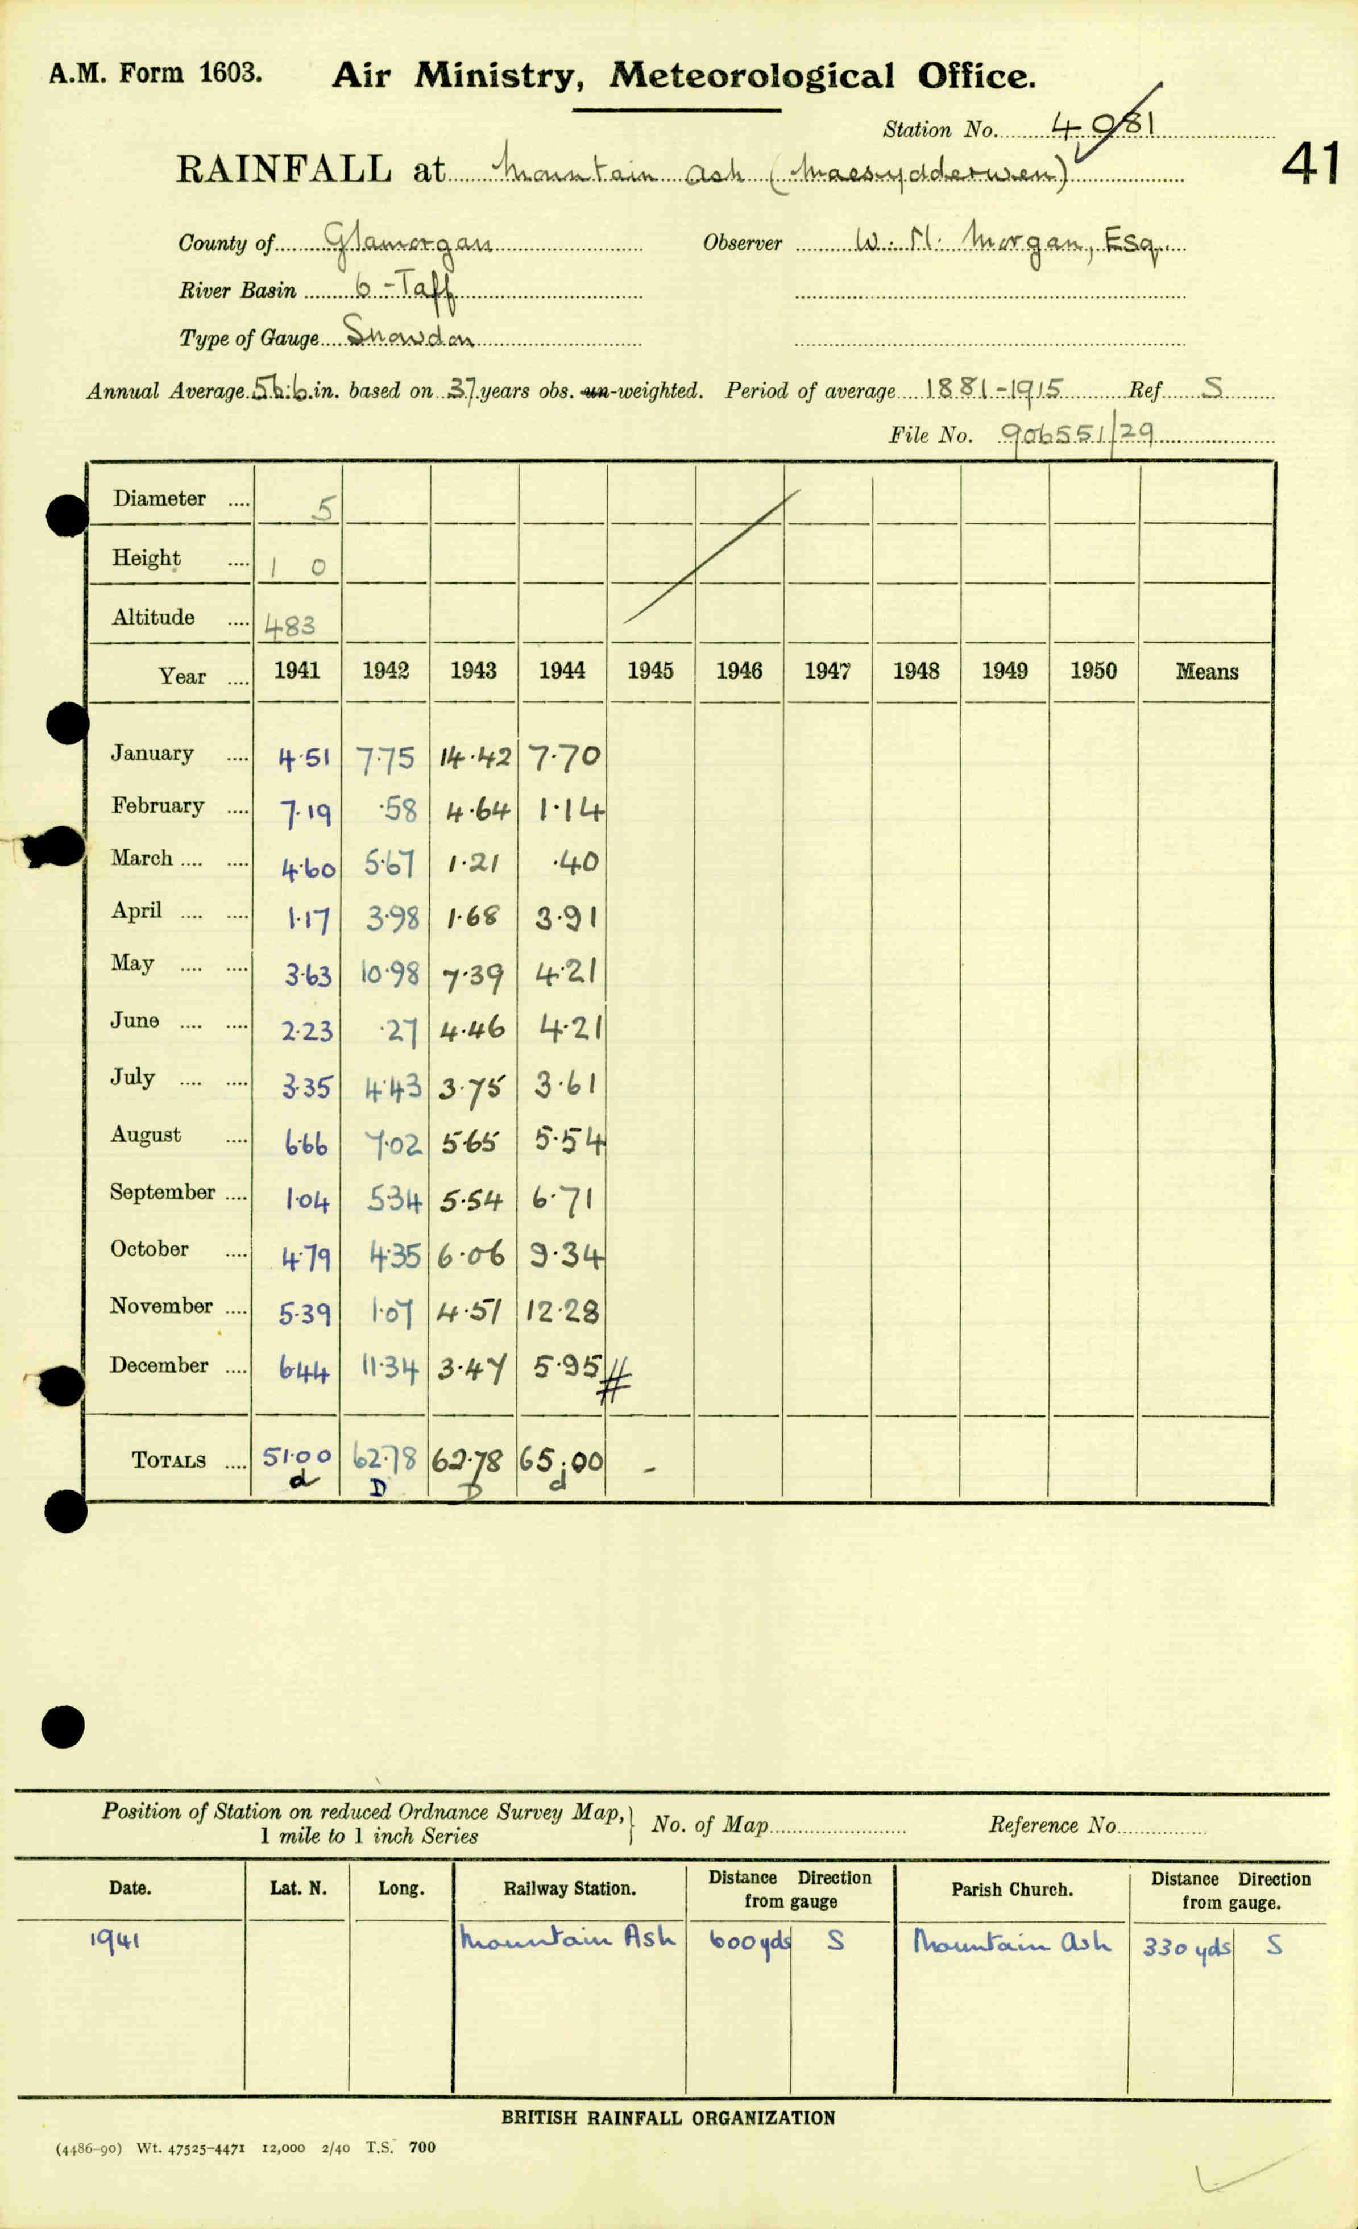 A.M. Form 1603. Air Ministry, Meteorological Office.
Station No. 4081
41
RAINFALL at Mountain Ash (Maesydderwen)
County of Glamorgan Observer W. M. Morgan, Esq.
River Basin 6 - Taff
Type of Gauge Snowdon
Annual Average 56.6 in. based on 37 years obs. un-weighted. Period of average 1881-1915 Ref S
File No. 906551/29
Diameter .... 5
Height .... 1 0
Altitude .... 483
Year .... 1941 1942 1943 1944 1945 1946 1947 1948 1949 1950 Means
January .... 4.51 7.75 14.42 7.70
February .... 7.19 .58 4.64 1.14
March .... .... 4.60 5.67 1.21 .40
April .... .... 1.17 3.98 1.68 3.91
May .... .... 3.63 10.98 7.39 4.21
June .... .... 2.23 .27 4.46 4.21
July .... .... 3.35 4.43 3.75 3.61
August .... 6.66 7.02 5.65 5.54
September .... 1.04 5.34 5.54 6.71
October .... 4.79 4.35 6.06 9.34
November .... 5.39 1.07 4.51 12.28
December .... 6.44 11.34 3.47 5.95 #
TOTALS .... 51.00 62.78 62.78 65.00 -
d D D d
Position of Station on reduced Ordnance Survey Map, } No. of Map Reference No
1 mile to 1 inch Series
Date. Lat. N. Long. Railway Station. Distance Direction from gauge Parish Church. Distance Direction from gauge.
1941 Mountain Ash 600 yds S Mountain Ash 330 yds S
BRITISH RAINFALL ORGANIZATION
(4486-90) Wt. 47525-4471 12,000 2/40 T.S. 700